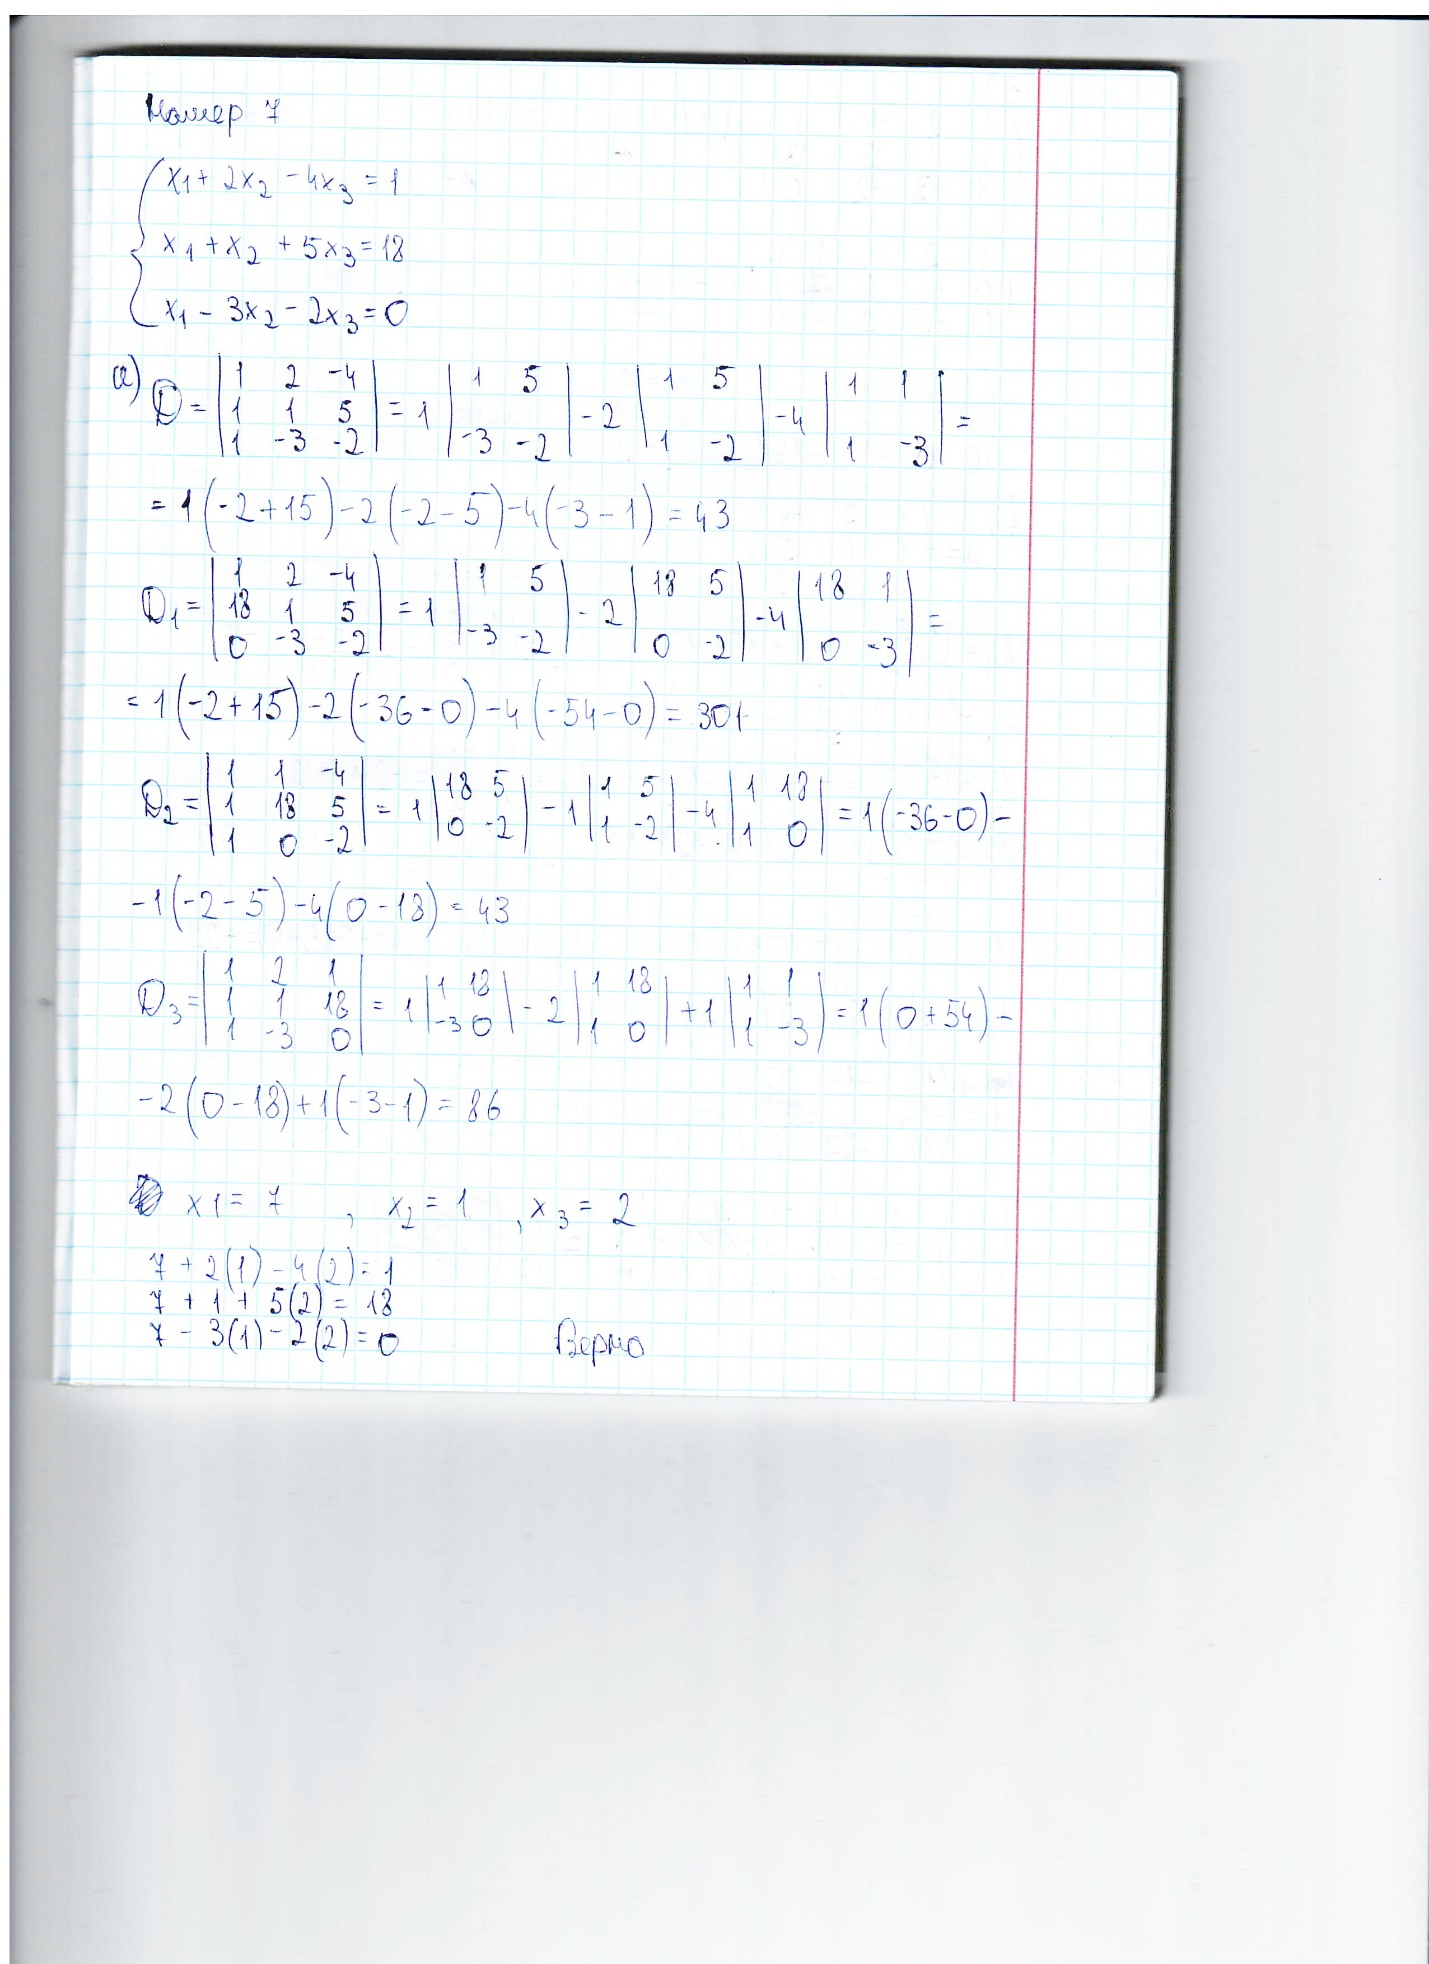 Номер 7
x₁ + 2x₂ - 4x₃ = 1
x₁ + x₂ + 5x₃ = 18
x₁ - 3x₂ - 2x₃ = 0
а) D = |1 2 -4; 1 1 5; 1 -3 -2| = 1 |1 5; -3 -2| - 2 |1 5; 1 -2| - 4 |1 1; 1 -3| =
= 1(-2+15) - 2(-2-5) - 4(-3-1) = 43
D₁ = |1 2 -4; 18 1 5; 0 -3 -2| = 1 |1 5; -3 -2| - 2 |18 5; 0 -2| - 4 |18 1; 0 -3| =
= 1(-2+15) - 2(-36-0) - 4(-54-0) = 301
D₂ = |1 1 -4; 1 18 5; 1 0 -2| = 1 |18 5; 0 -2| - 1 |1 5; 1 -2| - 4 |1 18; 1 0| = 1(-36-0) -
-1(-2-5) - 4(0-18) = 43
D₃ = |1 2 1; 1 1 18; 1 -3 0| = 1 |1 18; -3 0| - 2 |1 18; 1 0| + 1 |1 1; 1 -3| = 1(0+54) -
-2(0-18) + 1(-3-1) = 86
x1 = 7 , x₂ = 1 , x₃ = 2
7 + 2(1) - 4(2) = 1
7 + 1 + 5(2) = 18
7 - 3(1) - 2(2) = 0 Верно